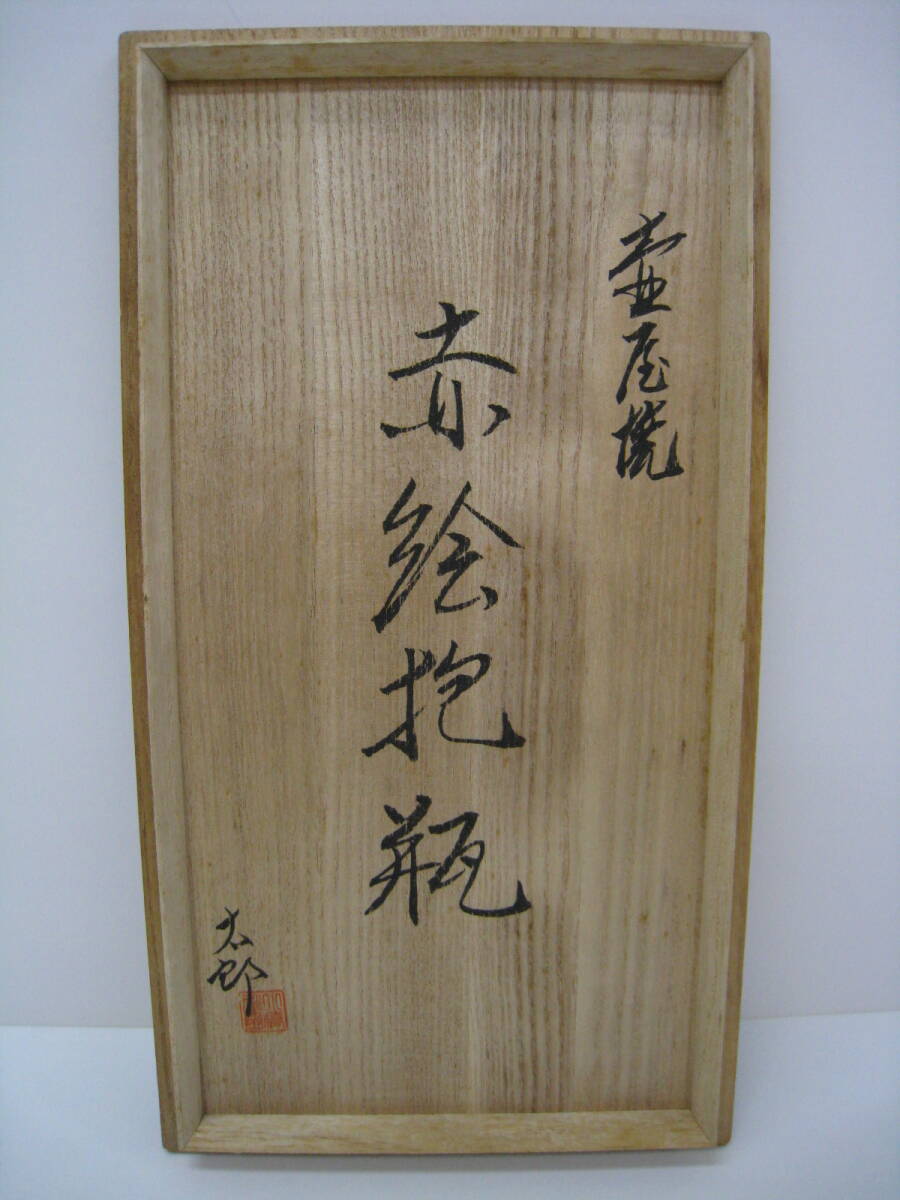 壺屋焼
赤絵抱瓶
太郎